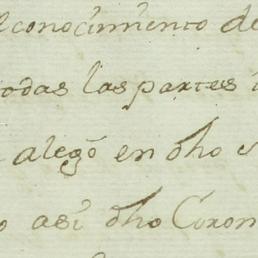 conocimiento de
todas las partes
alegó en dho
así dho Coron